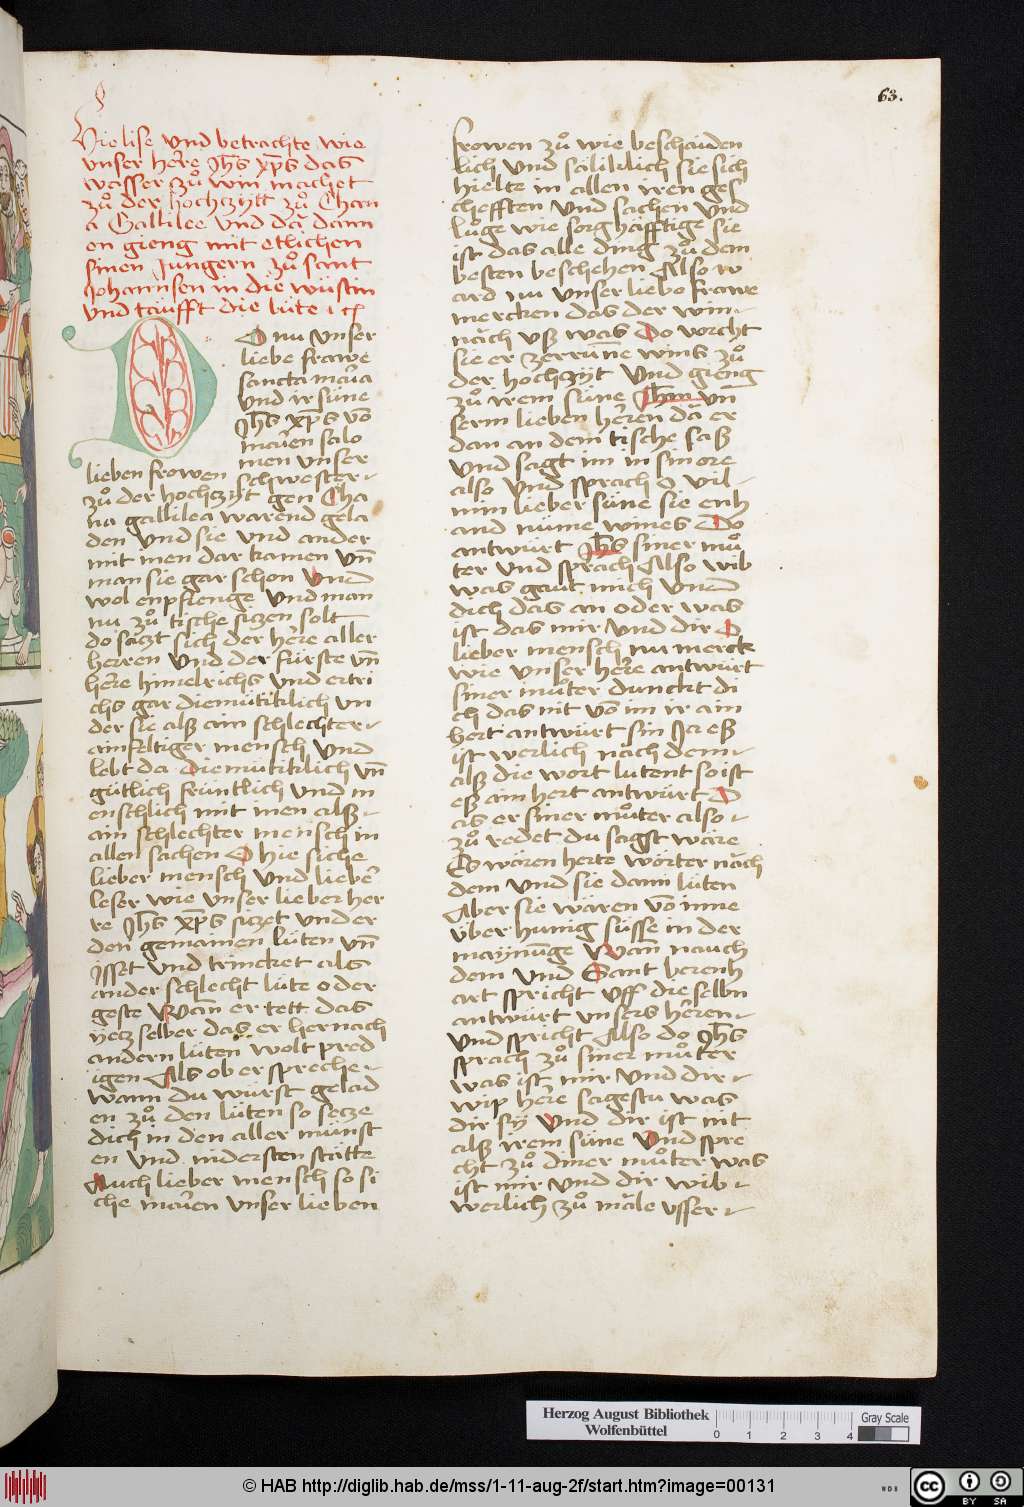 63.
Hie lise vnd betrachte wie
vnser here Jhs xps das
wasser zuͦ win machet
zuͦ der hochzytt zuͦ Chan
a Gallilee vnd da dann
en gieng mit etlichen
sinen Jungern zuͦ sant
Johannsen in die wuͤstin
vnd taͧufft die luͤte
Do nu vnser
liebe frawe
sancta maria
vnd ir suͤne
Jhs xps vo
marien salo
men vnser
lieben frowen schwester
zuͦ der hochzyt gen Cha
na gallilea warend gela
den vnd sie vnd ander
mit inen dar kamen vn̄
man sie gar schon vnd
wol enpfienge vnd man
nu zuͦ tische sitzen solt
do satzt sich der here aller
herren vnd der fuͤrste vn̄
here himelrichs vnd ertri
chs gar diemuͤtiklich vn
der sie alß ain schlechter
ainfeltiger mensch vnd
lebt da diemuͤtiklich vn̄
guͤtlich fruͤntlich vnd m
enschlich mit inen alß
ain schlechter mensch in
allen sachen O hie siche
lieber mensch vnd lieber
leser wie vnser lieber her
re Jhs xps sitzet vnder
den gemainen luͤten vn̄
isset vnd trincket als
ander schlecht luͤte oder
geste Wan er tett das
yetz selber das er hernach
andern luͤten wolt pred
igen Als ob er spreche
wann du wuͤrst gelad
en zuͦ den luͤten so setze
dich in den aller minst
en vnd nidersten staͤtte
Auch lieber mensch so si
che marien vnser lieben
frowen zuͦ wie beschaiden
lich vnd saͤliklich sie sich
hielte in allen iren ges
chefften vnd sachen vnd
luͦge wie sorghafftige sie
ist das alle ding zuͦ dem
besten beschehen Also w
ard nu vnser liebe frawe
mercken das der win
nach vß was Do vorcht
sie er zerrunne wins zuͦ
der hochzyt vnd gieng
zuͦ irem suͤne Jhm vn
serm lieben herren da er
dan an dem tische saß
vnd sagt im in sin ore
also vnd sprach O vil
min lieber suͤne sie enh
and nuͤme wines Do
antwuͤrt Jhs siner muͦ
ter vnd sprach Also wib
was gaut mich vnd
dich das an oder was
ist das mir vnd dir O
lieber mensch nu merck
wie vnser here antwuͤrt
siner muͦter dunckt di
ch das nit vo im ir ain
hert antwuͤrt sin Ja eß
ist werlich nach dem
alß die wort lutent so ist
eß ain hert antwuͤrt D
as er siner muͦter also
zuͦ redet du sagst ware
Es waͤren herte woͤrter nach
dem vnd sie dann luten
Aber sie waͤren vo inne
uͤber hunig suͤsse in der
maynunge Wan nauch
dem vnd Sant bernh
art spricht vff die selbn
antwuͤrt vnsers herren
vnd spricht Also do Jhs
sprach zuͦ siner muͦter
was ist mir vnd dir
wip here sagestu was
dir sy vnd dir ist nit
alß irem suͤne vnd spre
cht zuͦ diner muͦter was
ist mir vnd dir wib
werlich zuͦ male vsser
Herzog August Bibliothek
Wolfenbüttel
0 1 2 3 4
Gray Scale
© HAB http://diglib.hab.de/mss/1-11-aug-2f/start.htm?image=00131
WDB
CC BY SA